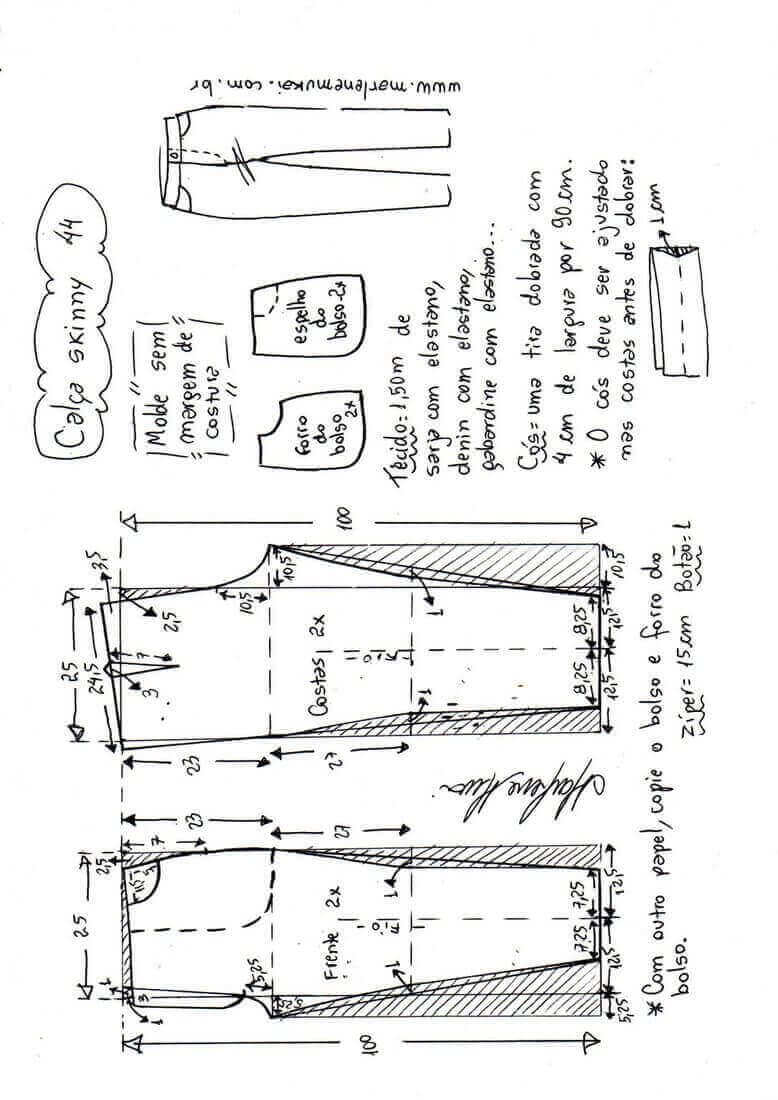 Calça skinny 44
www.marlenemukai.com.br
Molde sem
margem de
costura
forro
do
bolso
2x
espelho
do
bolso-2x
Tecido=1,50m de
sarja com elastano,
denin com elastano,
gabardine com elastano...
Cós=uma tira dobrada com
4 cm de largura por 90cm.
* O cós deve ser ajustado
nas costas antes de dobrar:
1 cm
100
25
24,5
3,5
2,5
7
3
10,5
10,5
Costas 2x
Fio
23
27
1
1
8,25
8,25
12,5
12,5
10,5
100
25
2,5
7
23
27
1
3
1
5,25
Frente 2x
Fio
1
1
7,25
7,25
12,5
12,5
5,25
* Com outro papel, copie o bolso e forro do
bolso.
Zíper=15cm Botão=1